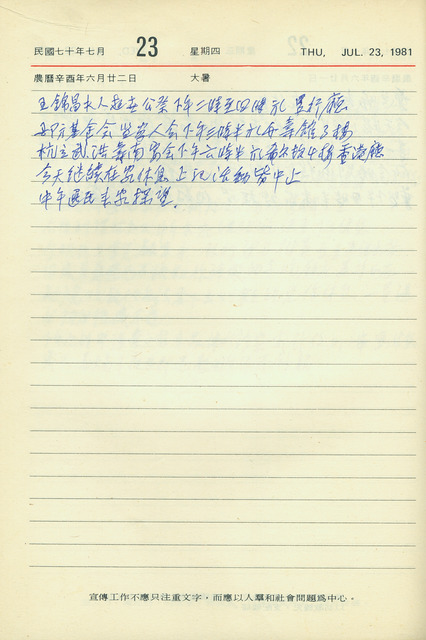 民國七十年七月 23 星期四 THU, JUL. 23, 1981
農曆辛酉年六月廿二日 大暑
王錦昌夫人赴公祭下午二時至四時 景行廳
基金會 人會下午三時半 三樓
杭立武 宴會下午六時半 4樓香港廳
今天繼續在家休息上記活動皆中止
中午 來家探望.
宣傳工作不應只注重文字，而應以人羣和社會問題爲中心。